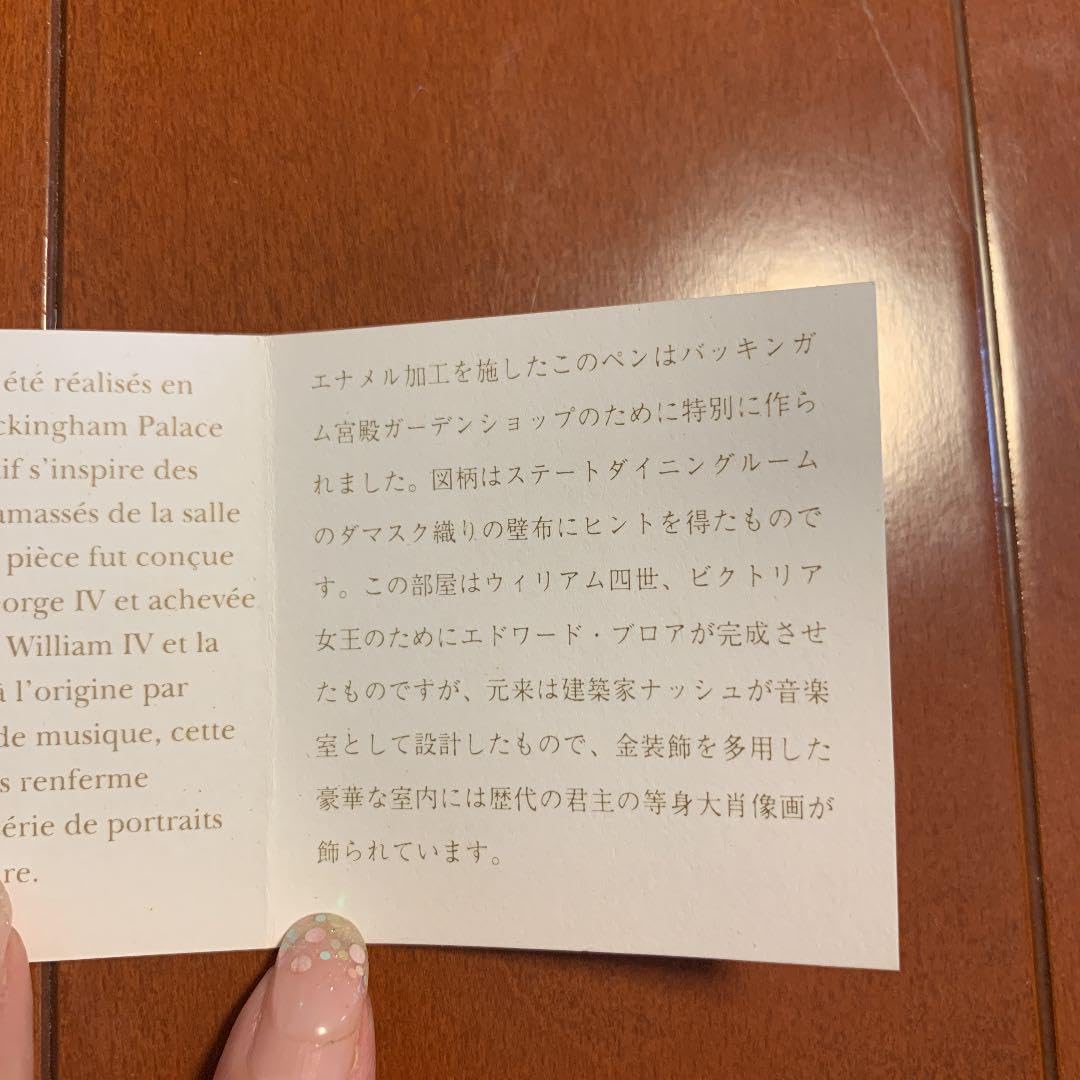 été réalisés en
Palace
s'inspire des
de la salle
pièce fut conçue
IV et achevée
William IV et la
l'origine par
de musique, cette
renferme
de portraits
エナメル加工を施したこのペンはバッキンガ
ム宮殿ガーデンショップのために特別に作ら
れました。図柄はステートダイニングルーム
のダマスク織りの壁布にヒントを得たもので
す。この部屋はウィリアム四世、ビクトリア
女王のためにエドワード・ブロアが完成させ
たものですが、元来は建築家ナッシュが音楽
室として設計したもので、金装飾を多用した
豪華な室内には歴代の君主の等身大肖像画が
飾られています。